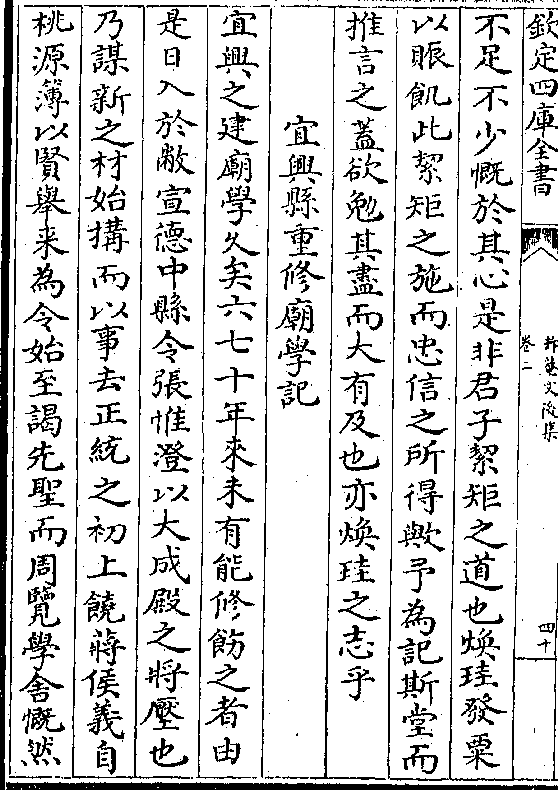 欽定四庫全書
卷二
四十
不足不少慨於其心是非君子絜矩之道也煥珪發粟
以賑飢此絜矩之施而忠信之所得歟予為記斯堂而
推言之蓋欲勉其盡而大有及也亦煥珪之志乎
宜興縣重修廟學記
宜興之建廟學久矣六七十年來未有能修飭之者由
是日入於敝宣德中縣令張惟澄以大成殿之將壓也
乃謀新之材始搆而以事去正統之初上饒蔣侯義自
桃源簿以賢舉来為令始至謁先聖而周覽學舍慨然